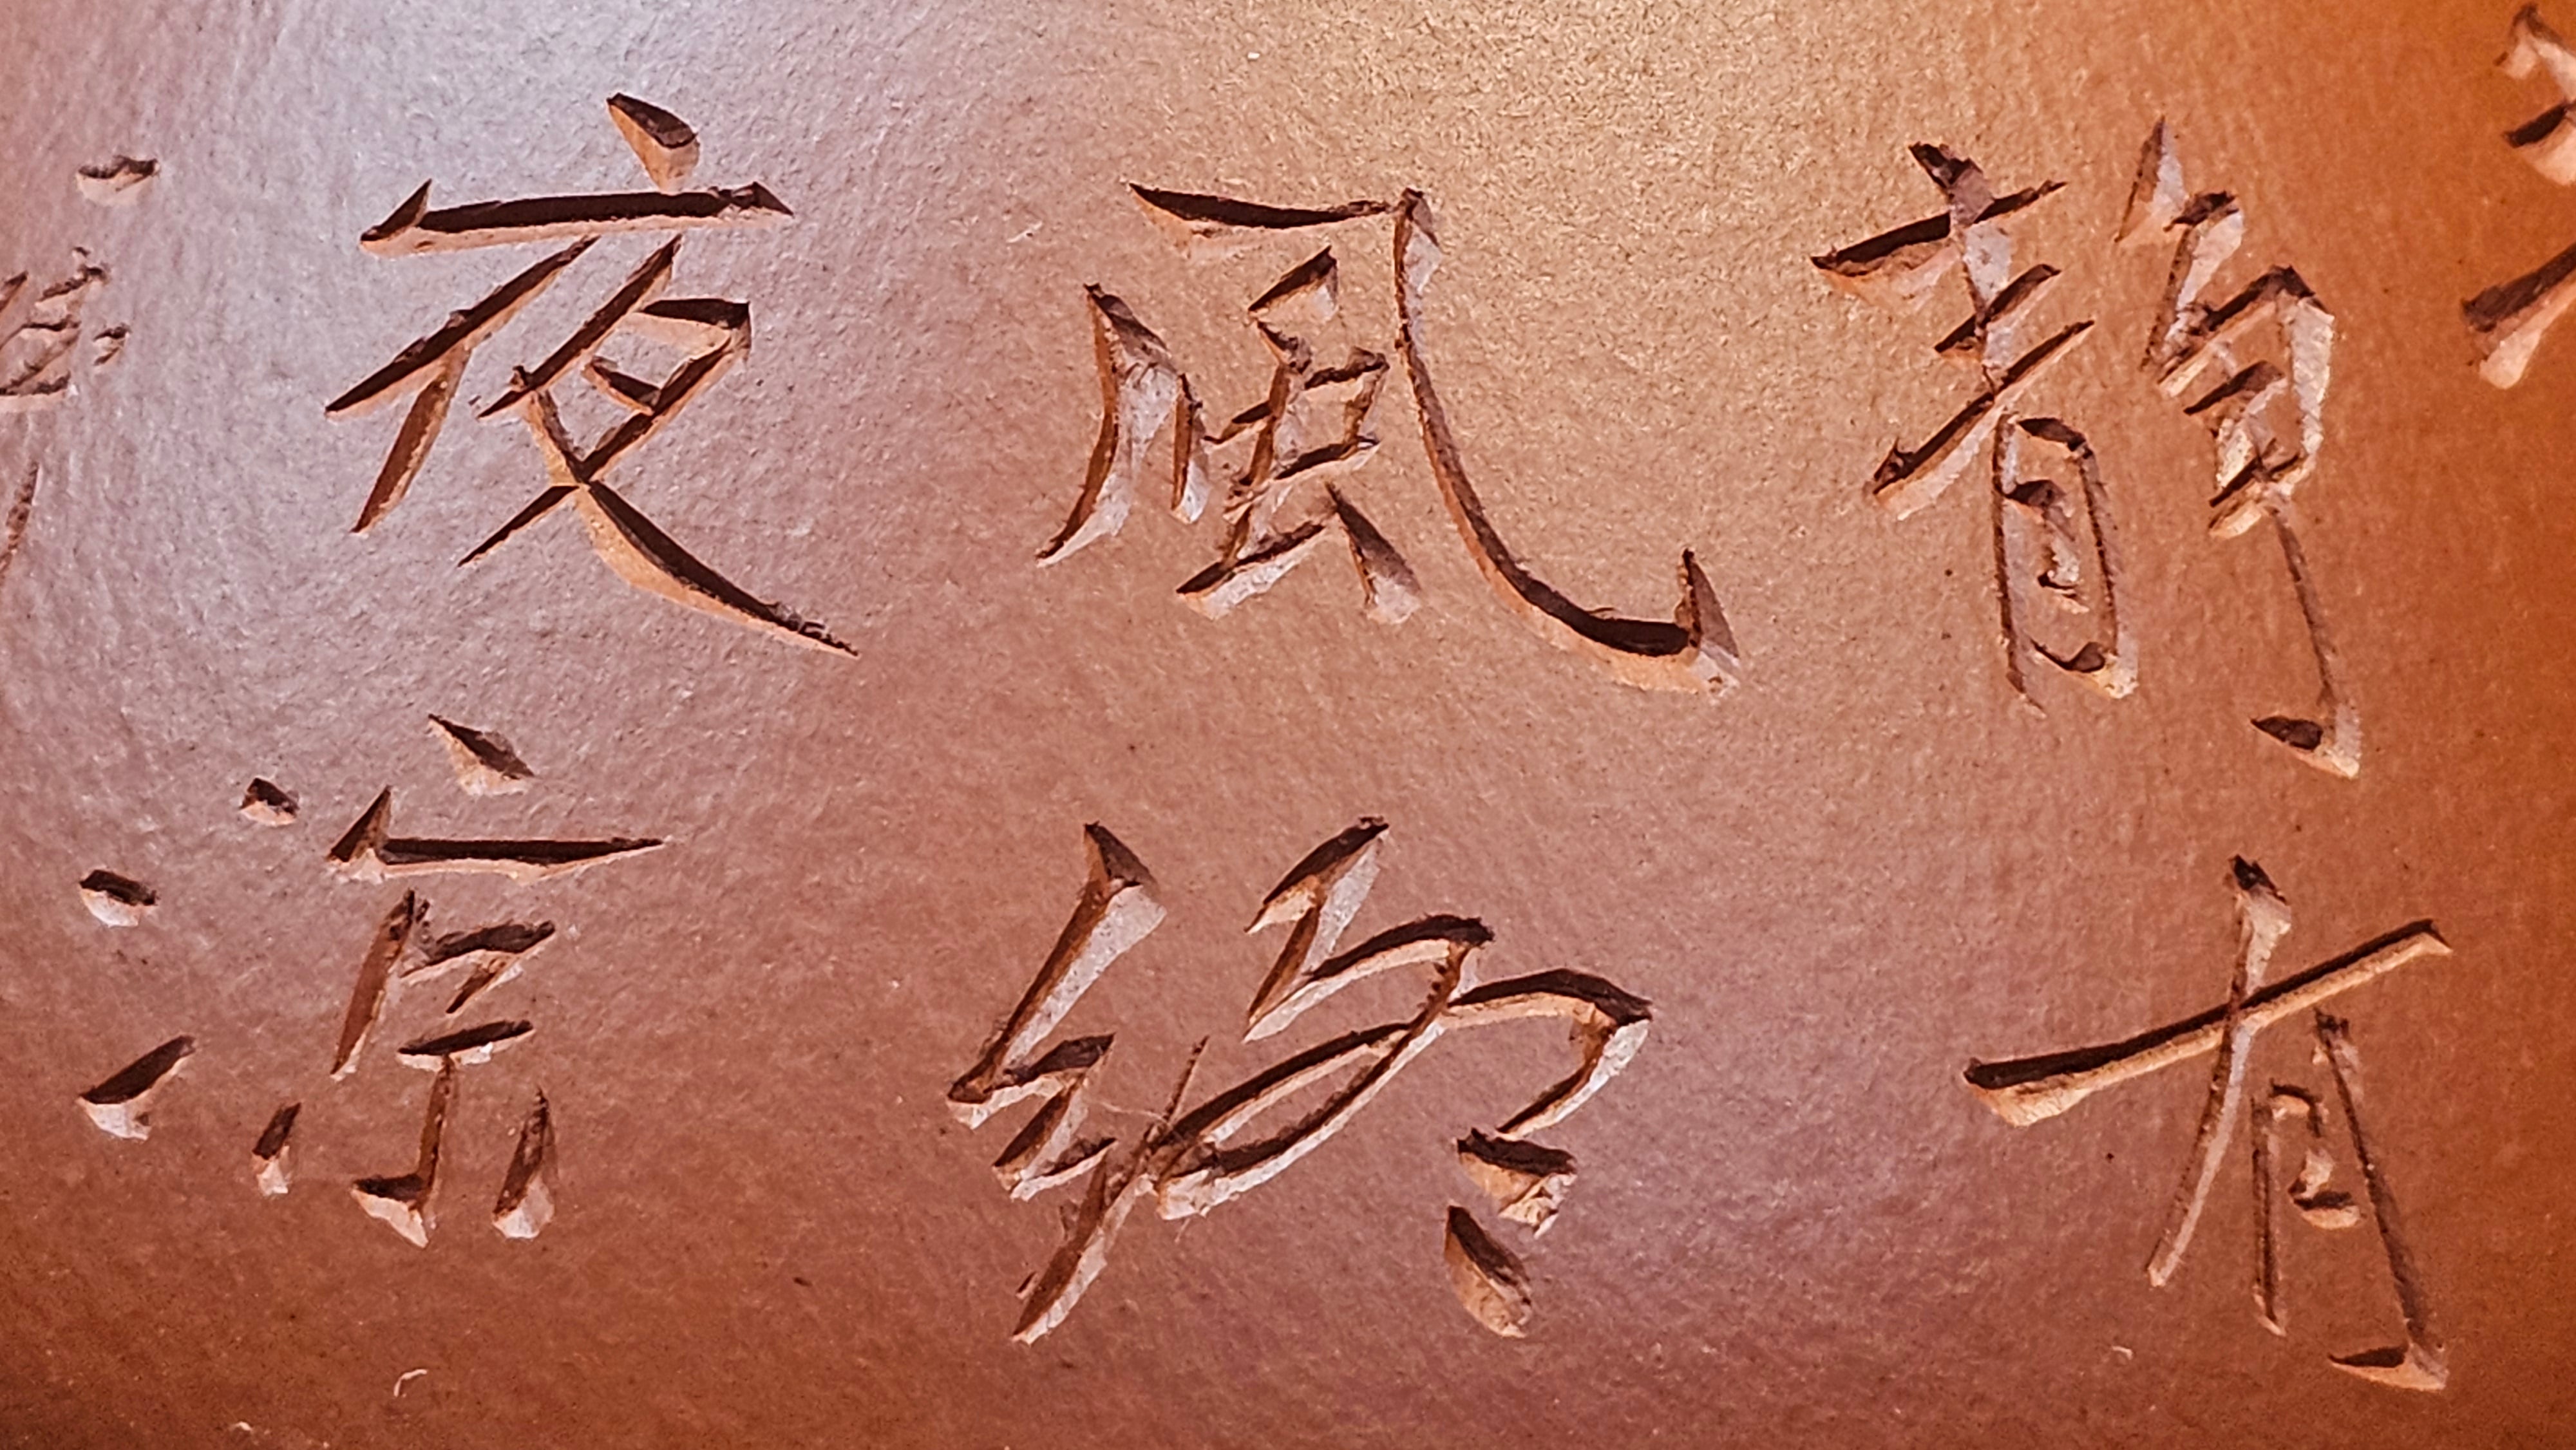 静有
風緣
夜涼